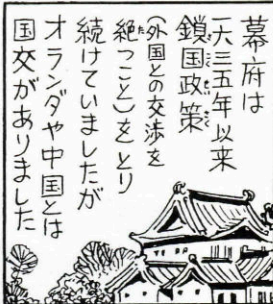 幕府は
一六三五年以来
鎖国政策
(外国との交渉を
絶つこと)をとり
続けていましたが
オランダや中国とは
国交がありました